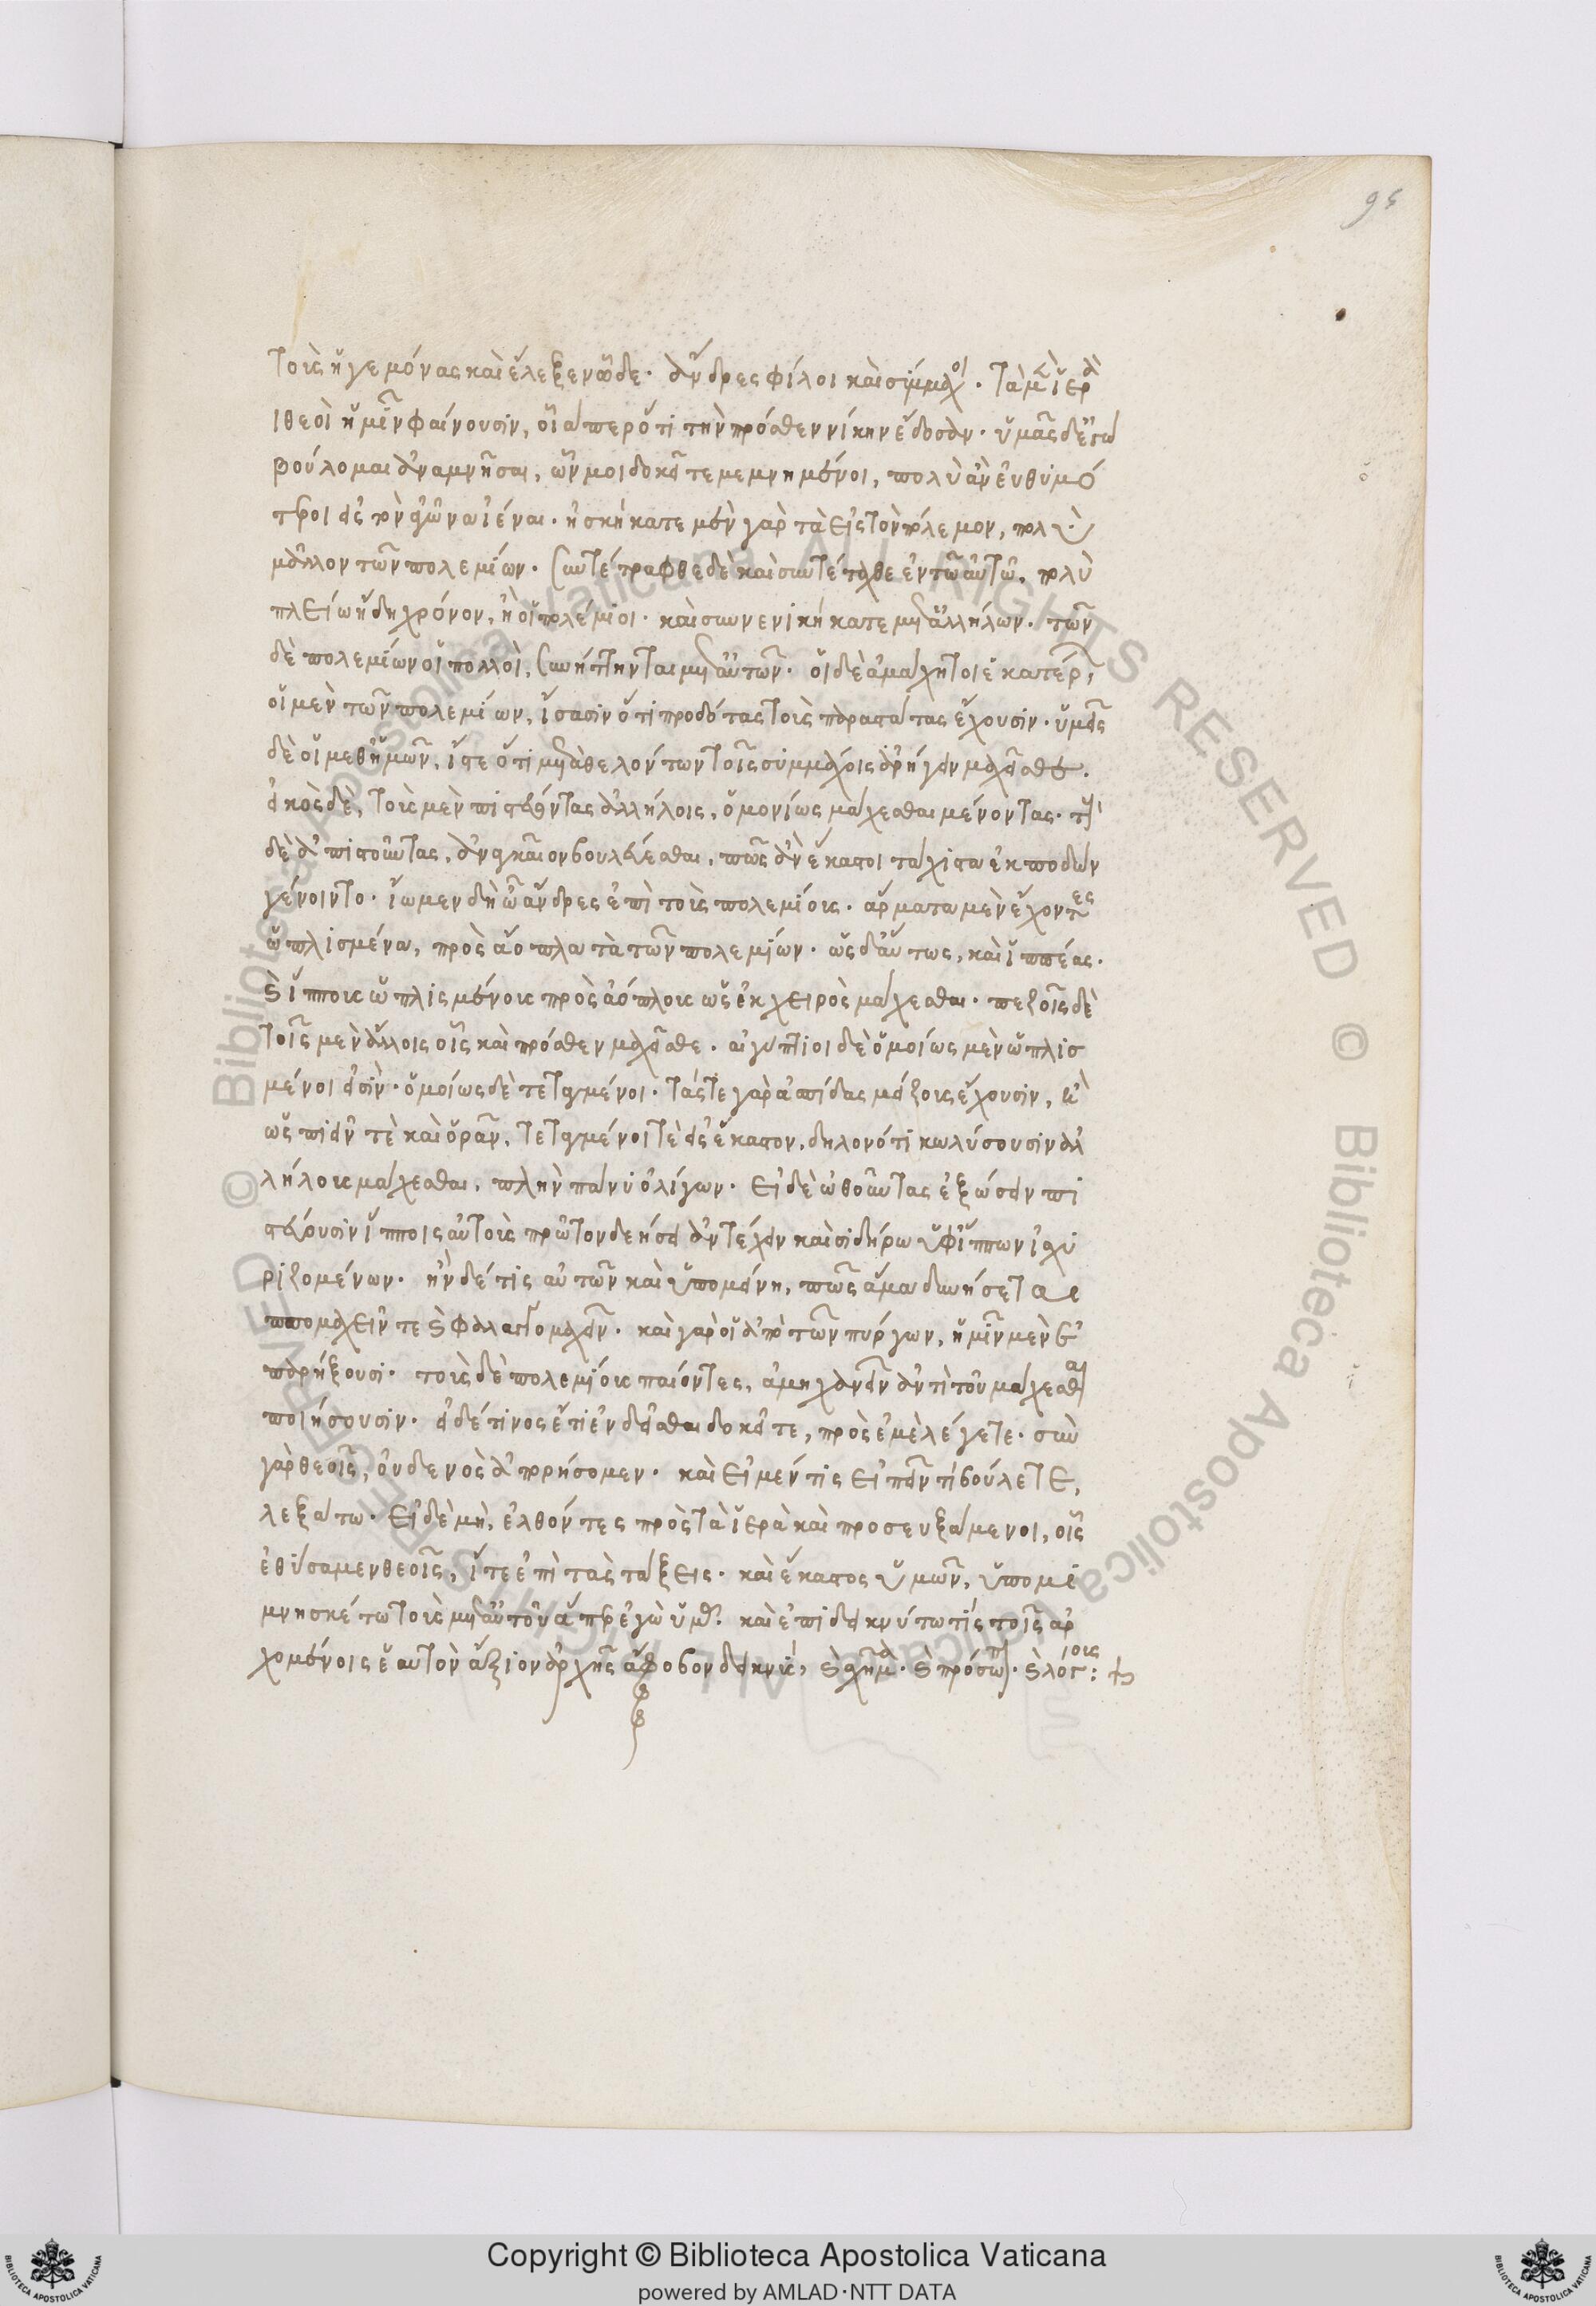 95
τοὺς ἡγεμόνας καὶ ἔλεξεν ὧδε· ἄνδρες φίλοι καὶ σύμμαχοι· τὰ μὲν ἱερὰ
ἱ θεοὶ ἡμῖν φαίνουσιν, οἷαπερ ὅτι τὴν πρόσθεν νίκην ἔδοσαν· ὑμᾶς δὲ ἐγὼ
βούλομαι ἀναμνῆσαι, ὧν μοι δοκεῖτε μεμνημένοι, πολὺ ἂν εὐθυμό
τεροι εἰς τὸν ἀγῶνα ἰέναι· ἠσκήκατε μὲν γὰρ τὰ εἰς τὸν πόλεμον, πολὺ
μᾶλλον τῶν πολεμίων· συντέτραφθε δὲ καὶ συντέταχθε ἐν τῷ αὐτῷ, πολὺ
πλείω ἤδη χρόνον, ἢ οἱ πολέμιοι· καὶ συννενικήκατε μετ' ἀλλήλων· τῶν
δὲ πολεμίων οἱ πολλοὶ, συνήττηνται μετ' αὐτῶν· οἱ δὲ ἀμάχητοι ἑκατέρων,
οἱ μὲν τῶν πολεμίων, ἴσασιν ὅτι προδότας τοὺς παραστάτας ἔχουσιν· ὑμεῖς
δὲ οἱ μεθ' ἡμῶν, ἴστε ὅτι μετὰ θελόντων τοῖς συμμάχοις ἀρήγειν μάχεσθε.
εἰκὸς δὲ, τοὺς μὲν πιστεύοντας ἀλλήλοις, ὁμονίως μάχεσθαι μένοντας· τοὺς
δὲ ἀπιστοῦντας, ἀναγκαῖον βουλεύεσθαι, πῶς ἂν ἕκαστοι τάχιστα ἐκποδὼν
γένοιντο· ἴωμεν δὴ ὦ ἄνδρες ἐπὶ τοὺς πολεμίους· ἅρματα μὲν ἔχοντες
ὡπλισμένα, πρὸς ἄοπλα τὰ τῶν πολεμίων· ὡς δ' αὔτως, καὶ ἱππέας·
καὶ ἵππους ὡπλισμένους πρὸς ἀόπλους ὡς ἐκ χειρὸς μάχεσθαι· πεζοῖς δὲ
τοῖς μὲν ἄλλοις οἷς καὶ πρόσθεν μαχεῖσθε· αἰγύπτιοι δὲ ὁμοίως μὲν ὡπλισ
μένοι εἰσίν· ὁμοίως δὲ τεταγμένοι· τάς τε γὰρ ἀσπίδας μείζους ἔχουσιν, ἢ
ὡς ποιεῖν τὲ καὶ ὁρᾶν, τεταγμένοι τὲ εἰς ἕκαστον, δηλονότι κωλύσουσιν ἀλ
λήλους μάχεσθαι, πλὴν πάνυ ὀλίγων· εἰ δὲ ὠθοῦντας ἐξώσειν πι
στεύουσιν ἵπποις αὐτοὺς πρῶτον δεήσει ἀντέχειν καὶ σιδήρω ὑφ' ἵππων ἰσχυ
ριζομένων· ἢν δέ τις αὐτῶν καὶ ὑπομείνη, πῶς ἅμα δυνήσεται
ἱππομαχεῖν τε καὶ φαλαγγομαχεῖν· καὶ γὰρ οἱ ἀπὸ τῶν πύργων, ἡμῖν μὲν ἐ
παρήξουσι· τοὺς δὲ πολεμίους παίοντες, ἀμηχανεῖν ἀντὶ τοῦ μάχεσθαι
ποιήσουσιν· εἰ δέ τινος ἔτι ἐνδεῖσθαι δοκεῖτε, πρὸς ἐμὲ λέγετε· σὺν
γὰρ θεοῖς, οὐδενὸς ἀπορήσομεν· καὶ εἰ μέν τις εἰπεῖν τι βούλεται,
λεξάτω· εἰ δὲ μὴ, ἐλθόντες πρὸς τὰ ἱερὰ καὶ προσευξάμενοι, οἷς
ἐθύσαμεν θεοῖς, ἴτε ἐπὶ τὰς τάξεις· καὶ ἕκαστος ὑμῶν, ὑπομι
μνησκέτω τοὺς μεθ' αὑτοῦ ἅπερ ἐγὼ ὑμᾶς· καὶ ἐπιδεικνύτω τίς τοῖς ἀρ
χομένοις ἑαυτὸν ἄξιον ἀρχῆς ἄφοβον δεικνὺς, καὶ σχῆμα· καὶ πρόσωπον· καὶ λόγους: